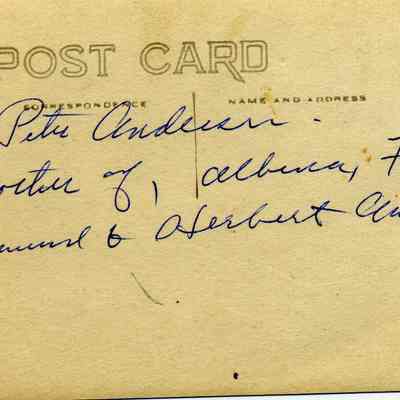 POST CARD
CORRESPONDENCE NAME AND ADDRESS
Pete Anderson.
of, Albina, F
& Herbert An